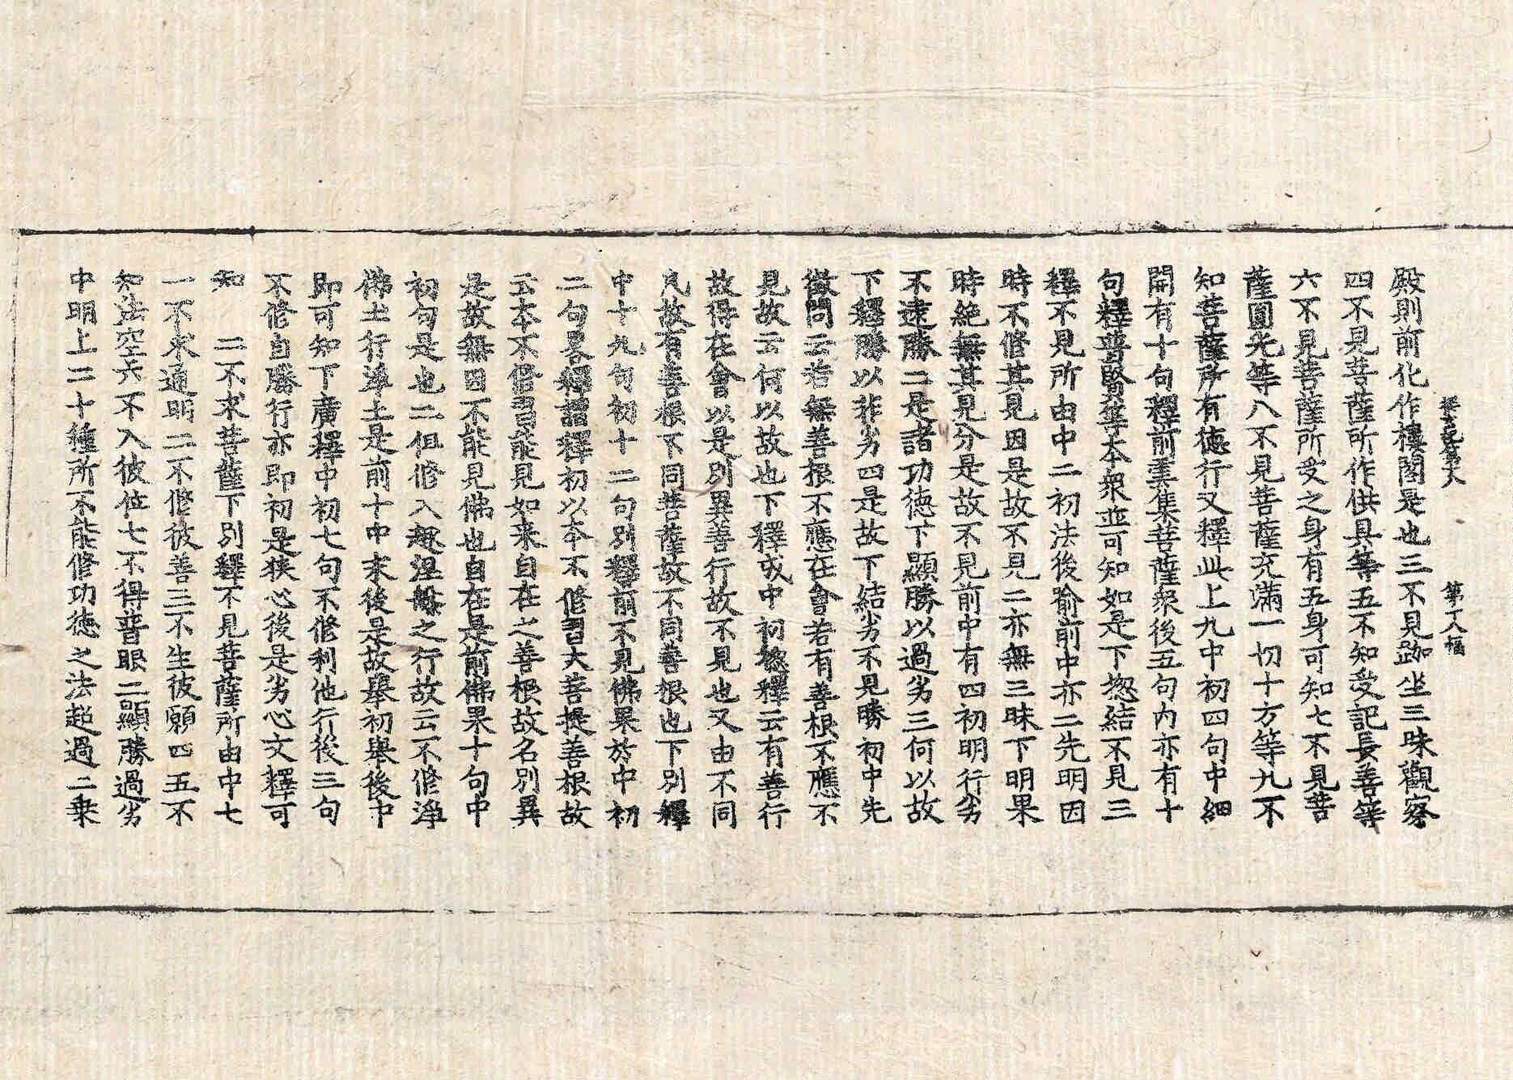 探玄記第十六 第十八幅
殿則前化作樓閣是也三不見跏坐三昧觀察
四不見菩薩所作供具等五不知受記長善等
六不見菩薩所受之身有五身可知七不見菩
薩圓光等八不見菩薩充滿一切十方等九不
知菩薩所有德行又釋此上九中初四句中細
開有十句釋前雲集菩薩衆後五句內亦有十
句釋普賢等本衆並可知如是下惣結不見三
釋不見所由中二初法後喻前中亦二先明因
時不修其見因是故不見二亦無三昧下明果
時絕無其見分是故不見前中有四初明行劣
不逮勝二是諸功德下顯勝以過劣三何以故
下釋勝以非劣四是故下結劣不見勝初中先
徵問云若無善根不應在會若有善根不應不
見故云何以故也下釋或中初惣釋云有善行
故得在會以是別異善行故不見也又由不同
凡故有善根不同菩薩故不同善根也下別釋
中十九句初十二句別釋前不見佛果於中初
二句畧釋謂釋初以本不修習大菩提善根故
云本不修習能見如来自在之善根故名別異
是故無因不能見佛也自在是前佛果十句中
初句是也二但修入趣涅槃之行故云不修淨
佛土行淨土是前十中末後是故舉初舉後中
即可知下廣釋中初七句不修利他行後三句
不修自勝行亦即初是狹心後是劣心文釋可
知 二不求菩薩下別釋不見菩薩所由中七
一不求通明二不修彼善三不生彼願四五不
知法空六不入彼位七不得普眼二顯勝過劣
中明上二十種所不能修功德之法超過二乗